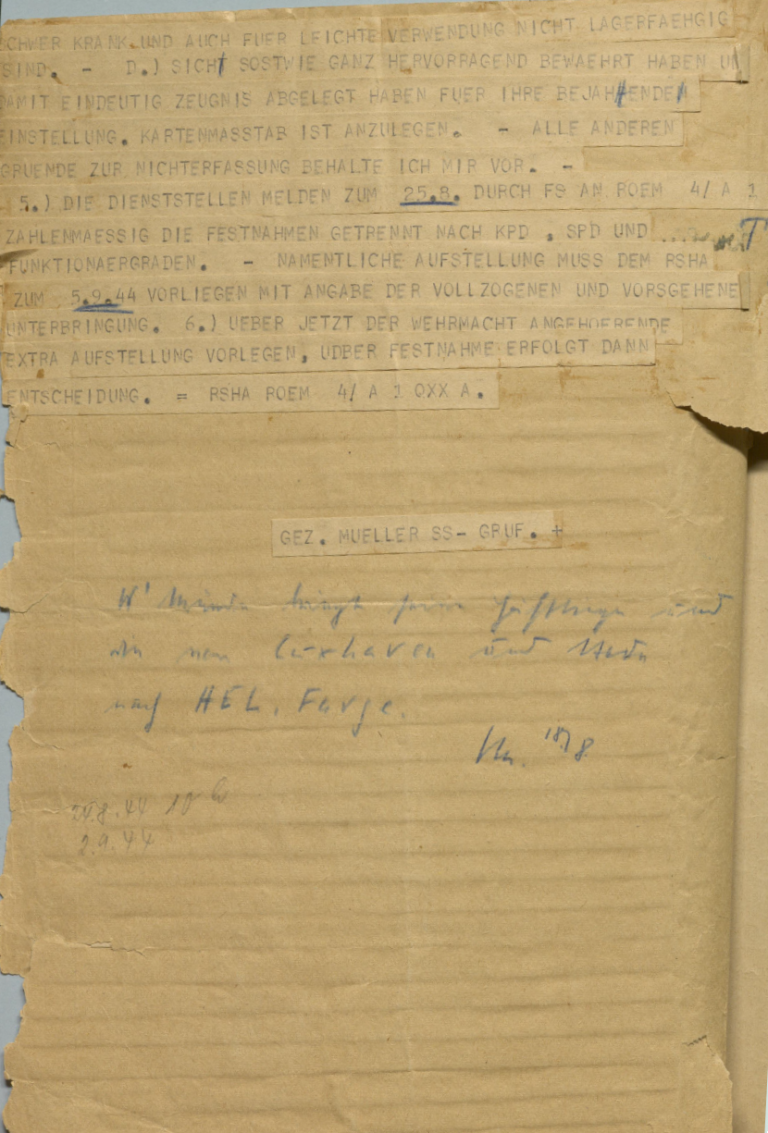 SCHWER KRANK UND AUCH FUER LEICHTE VERWENDUNG NICHT LAGERFAEHGIG
SIND. - D.) SICHT SOSTWIE GANZ HERVORRAGEND BEWAEHRT HABEN UN
DAMIT EINDEUTIG ZEUGNIS ABGELEGT HABEN FUER IHRE BEJAHENDE
EINSTELLUNG. KARTENMASSTAB IST ANZULEGEN. - ALLE ANDEREN
GRUENDE ZUR NICHTERFASSUNG BEHALTE ICH MIR VOR. -
5.) DIE DIENSTSTELLEN MELDEN ZUM 25.8. DURCH FS AN ROEM 4/ A 1
ZAHLENMAESSIG DIE FESTNAHMEN GETRENNT NACH KPD , SPD UND ...
FUNKTIONAERGRADEN. - NAMENTLICHE AUFSTELLUNG MUSS DEM RSHA
ZUM 5.9.44 VORLIEGEN MIT ANGABE DER VOLLZOGENEN UND VORSGEHENE
UNTERBRINGUNG. 6.) UEBER JETZT DER WEHRMACHT ANGEHOERENDE
EXTRA AUFSTELLUNG VORLEGEN, UDBER FESTNAHME ERFOLGT DANN
ENTSCHEIDUNG. = RSHA ROEM 4/ A 1 OXX A.
GEZ. MUELLER SS- GRUF. +
und
Cuxhaven und
nach AEL. Farge.
18/8.
2.9.44